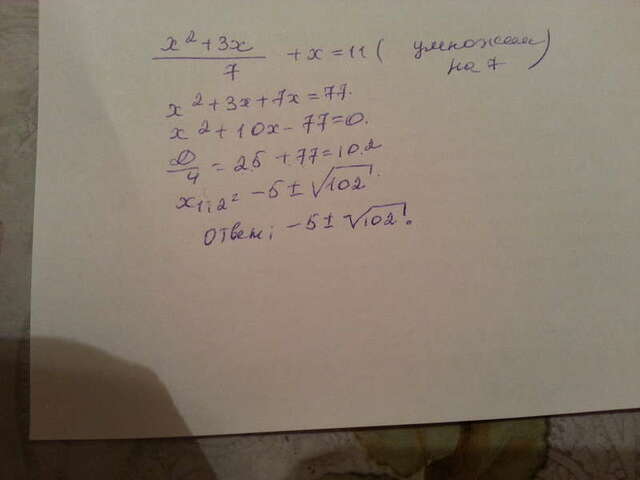 x² + 3x / 7 + x = 11 ( умножаем на 7 )
x² + 3x + 7x = 77.
x² + 10x - 77 = 0.
D/4 = 25 + 77 = 102
x₁,₂ = -5 ± √102.
Ответ: -5 ± √102.